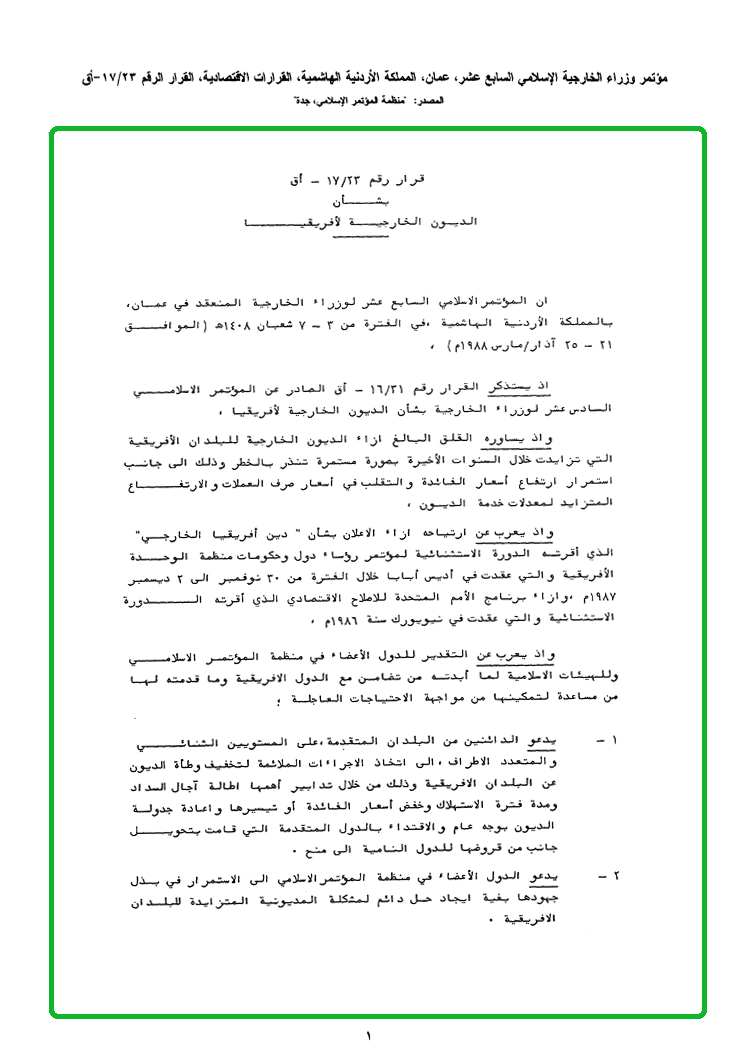 مؤتمر وزراء الخارجية الإسلامي السابع عشر، عمان، المملكة الأردنية الهاشمية، القرارات الاقتصادية، القرار الرقم ١٧/٢٣-أق
المصدر: "منظمة المؤتمر الإسلامي، جدة"
قرار رقم ١٧/٢٣ - أق
بشـــأن
الديـون الخارجيـــة لأفريقيـــــــا
ان المؤتمر الاسلامي السابع عشر لوزراء الخارجية المنعقد في عمان،
بالمملكة الأردنية الهاشمية ،في الفترة من ٣ - ٧ شعبان ١٤٠٨ه (الموافـــق
٢١ - ٢٥ آذار/مارس ١٩٨٨م) ،
اذ يستذكر القرار رقم ١٦/٣١ - أق الصادر عن المؤتمر الاسلامـــي
السادس عشر لوزراء الخارجية بشأن الديون الخارجية لأفريقيا ،
واذ يساوره القلق البالغ ازاء الديون الخارجية للبلدان الأفريقية
التي تزايدت خلال السنوات الأخيرة بصورة مستمرة تنذر بالخطر وذلك الى جانب
استمرار ارتفاع أسعار الفائدة والتقلب في أسعار صرف العملات والارتفـــاع
المتزايد لمعدلات خدمة الديون ،
واذ يعرب عن ارتياحه ازاء الاعلان بشأن " دين أفريقيا الخارجي"
الذي أقرته الدورة الاستثنائية لمؤتمر رؤساء دول وحكومات منظمة الوحـــدة
الأفريقية والتي عقدت في أديس أبابا خلال الفترة من ٣٠ نوفمبر الى ٢ ديسمبر
١٩٨٧م ،وازاء برنامج الأمم المتحدة للاصلاح الاقتصادي الذي أقرته الـــــدورة
الاستثنائية والتي عقدت في نيويورك سنة ١٩٨٦م ،
واذ يعرب عن التقدير للدول الأعضاء في منظمة المؤتمـر الاسلامـــي
وللهيئات الاسلامية لما أبدته من تضامن مع الدول الافريقية وما قدمته لهـا
من مساعدة لتمكينها من مواجهة الاحتياجات العاجلـة ؛
١ - يدعو الدائنين من البلدان المتقدمة ،على المستويين الثنائـــي
والمتعدد الاطراف ،الى اتخاذ الاجراءات الملائمة لتخفيف وطأة الديون
عن البلدان الافريقية وذلك من خلال تدابير أهمها اطالة آجال السداد
ومدة فترة الاستهلاك وخفض أسعار الفائدة أو تيسيرها واعادة جدولـة
الديون بوجه عام والاقتداء بالدول المتقدمة التي قامت بتحويـــل
جانب من قروضها للدول النامية الى منح .
٢ - يدعو الدول الأعضاء في منظمة المؤتمر الاسلامي الى الاستمرار في بـذل
جهودها بغية ايجاد حـل دائم لمشكلة المديونية المتزايدة للبلـدان
الافريقية .
١